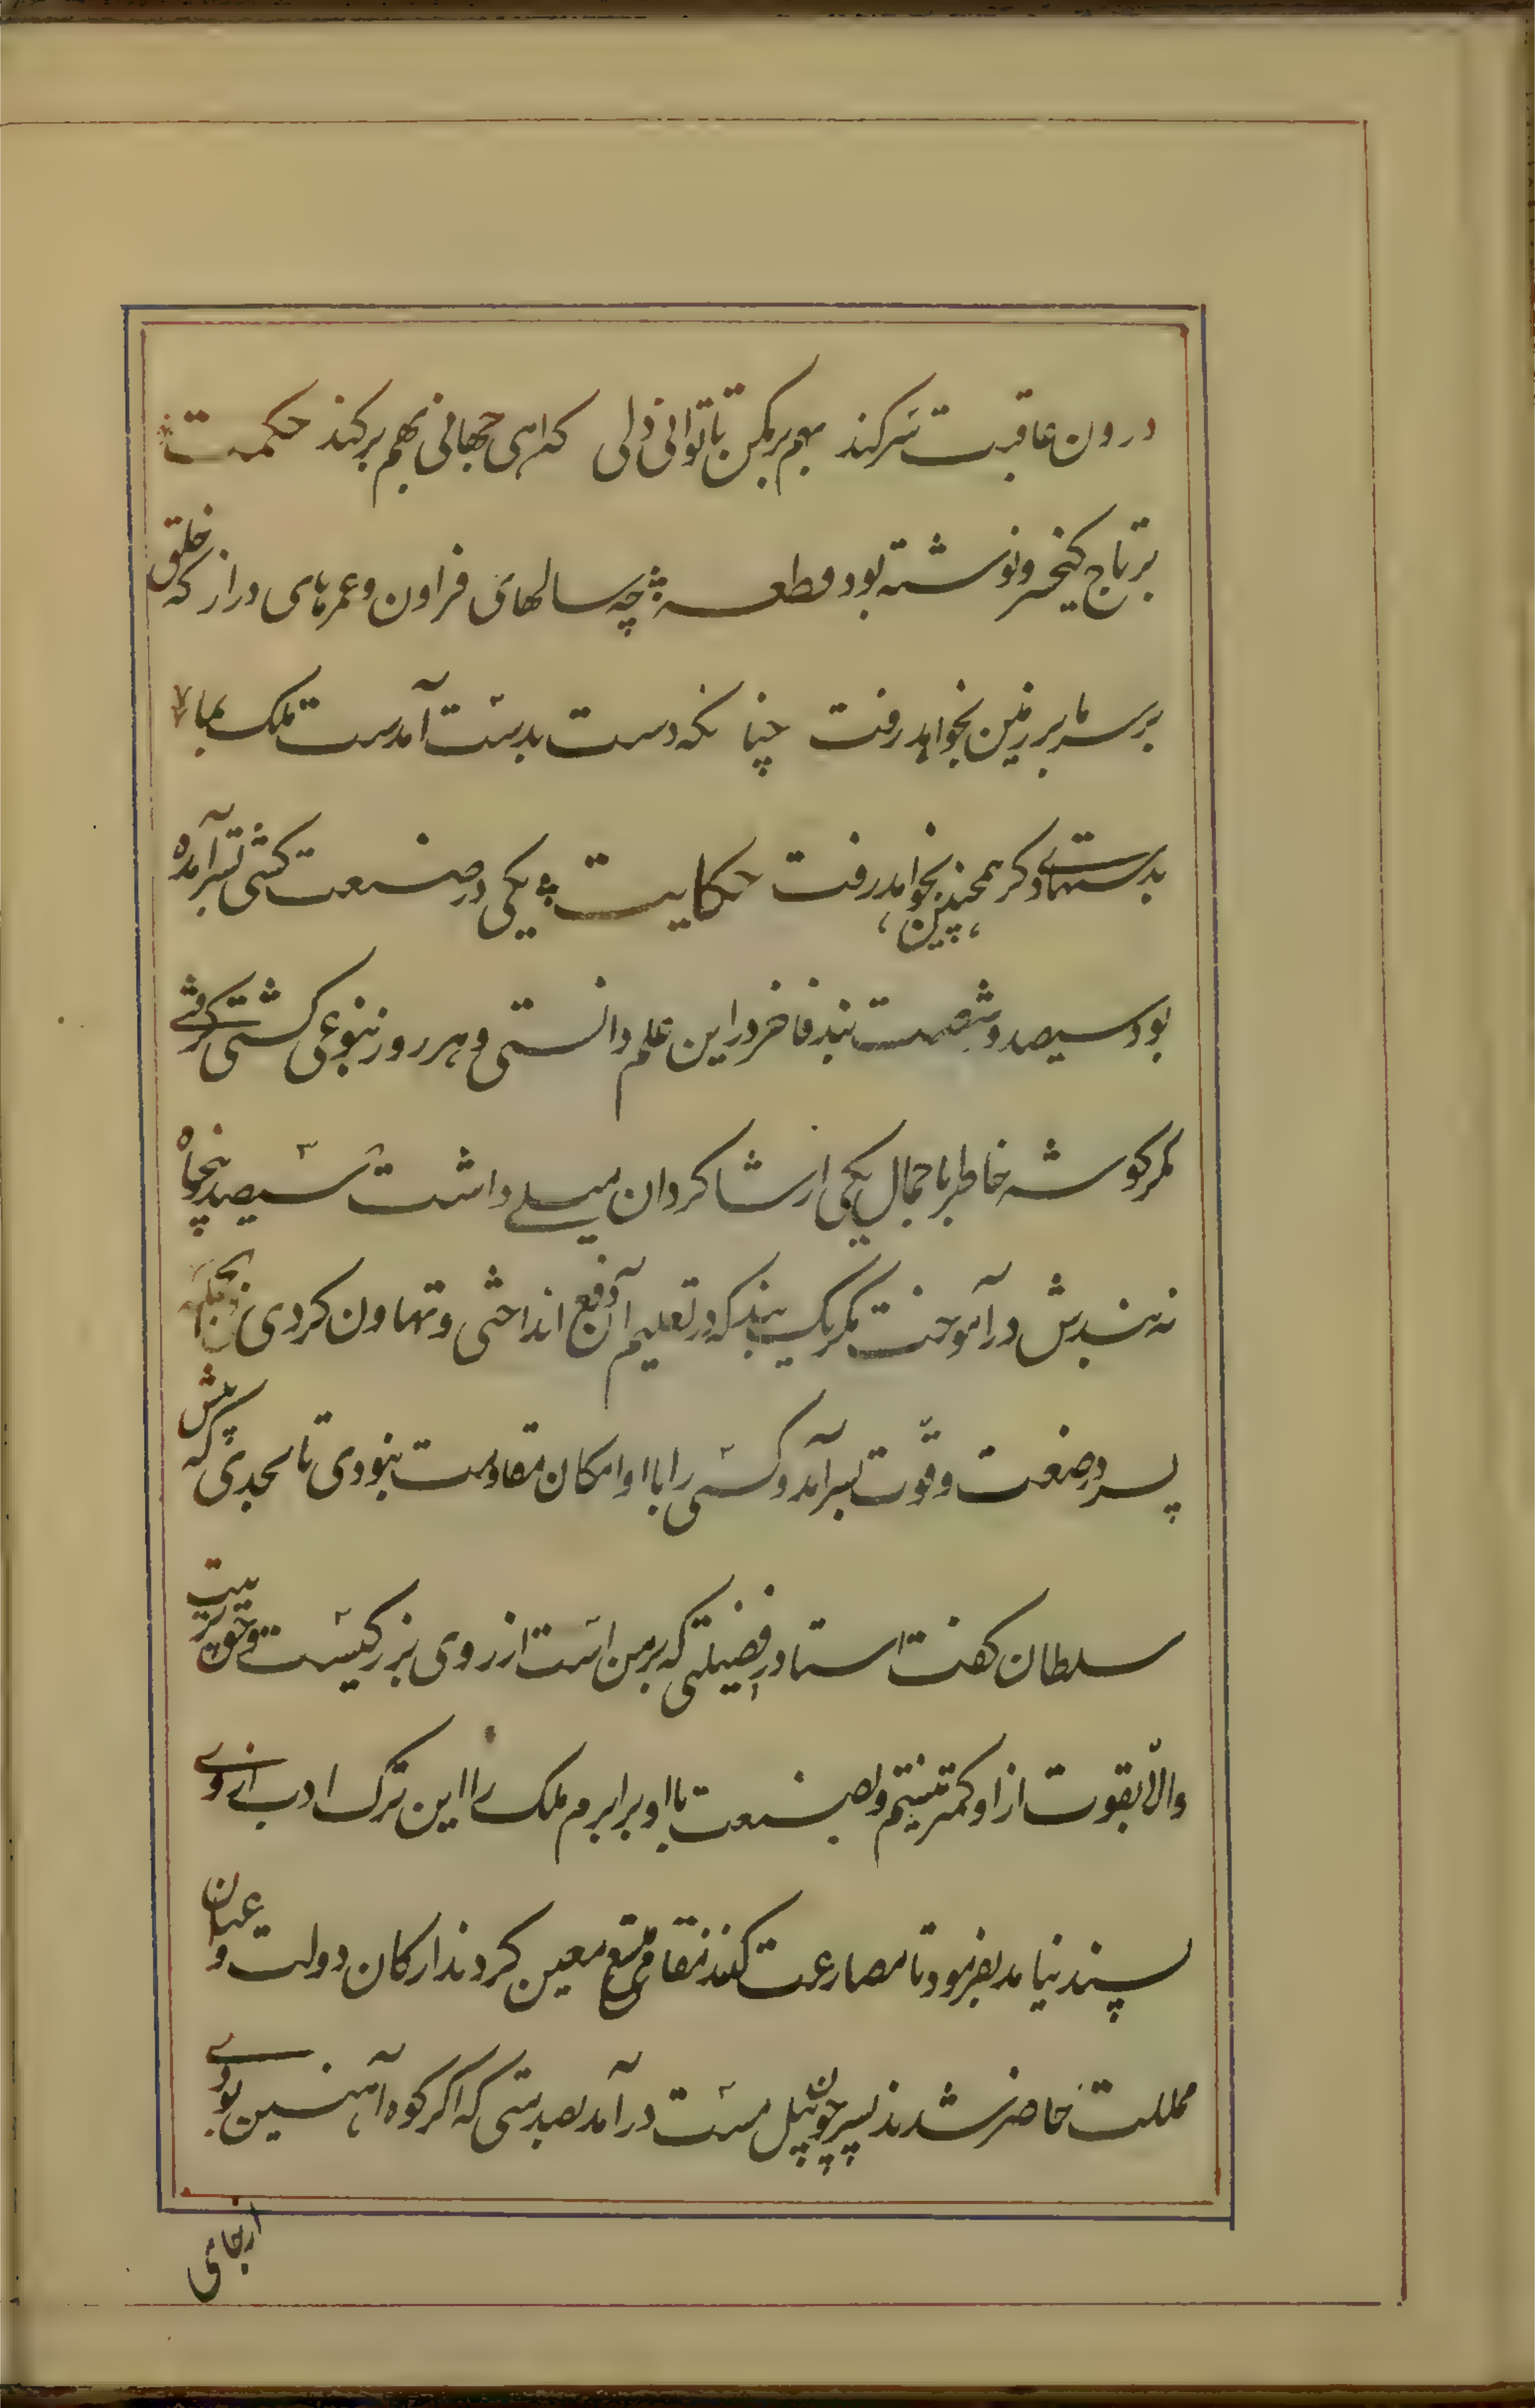 درون عاقبت سر کند بهم بر مکن تا توانی دلی که اهی جهانی بهم بر کند حکمت
بر تاج کیخسرو نوشته بود قطعه چه سالهای فراون و عمرهای دراز که خلق
بر سر ما بر زمین بخواهد رفت چنانکه دست بدست آمدست ملک بما
بدستهای دکر همچنین بخواهد رفت حکایت یکی در صنعت کشتی بسر آمده
بود سیصد و شصت بند فاخر در این علم دانستی و هر روز بنوعی کشتی کرفتی
مکر کوشه خاطر با جمال یکی از شاکردان میلی داشت سیصد و پنجاه
نه بندش در آموخت مکر یک بند که در تعلیم آن دفع انداختی و تهاون کردی
پسر در صنعت و قوت بسر آمد و کسی را با او امکان مقاومت نبودی تا بحدی که پیش
سلطان کفت استاد را فضیلتی که بر من است از روی بزرکیست و حق تربیت
والا بقوت از او کمتر نیستم و بصنعت با او برابرم ملک را این ترک ادب از وی
پسند نیامد بفرمود تا مصارعت کنند مقامی متسع معین کردند ارکان دولت و اعیان
مملکت حاضر شدند پسر چون پیل مست در آمد بصدمتی که اکر کوه آهنین بودی
از جای